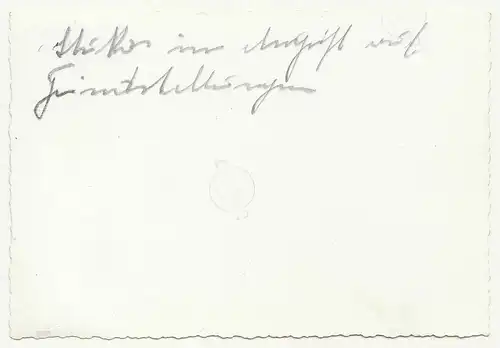 Stukas im Angriff auf
Feindstellungen